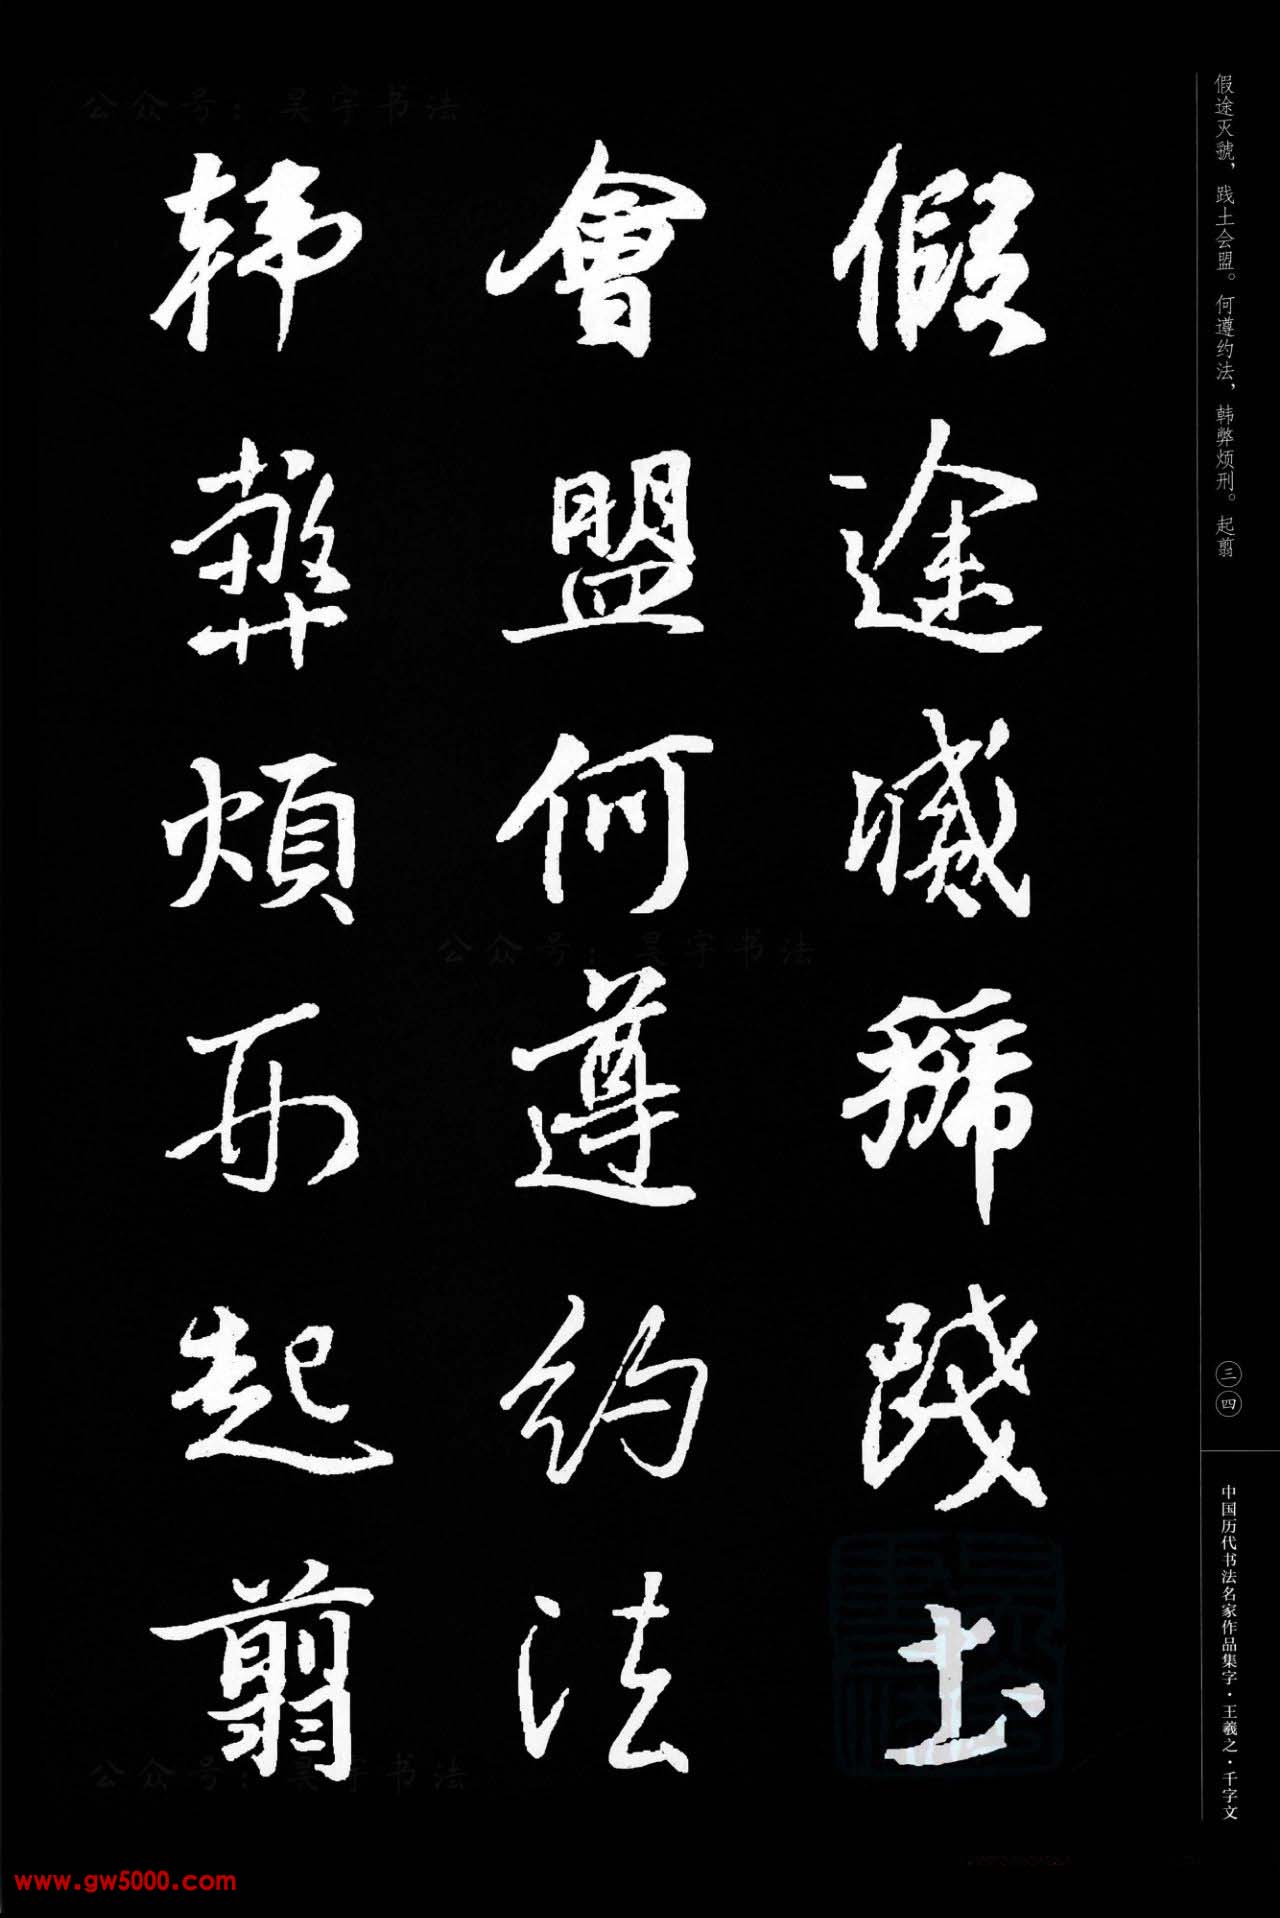 假途灭虢，践土会盟。何遵约法，韩弊烦刑。起翦
三四
中国历代书法名家作品集字·王羲之·千字文
假途滅虢踐土
會盟何遵約法
韓弊煩刑起翦
公众号：昊宇书法
公众号：昊宇书法
公众号：昊宇书法
www.gw5000.com